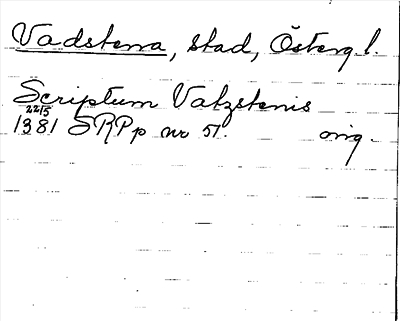 Vadstena, stad, Österg.l.
Scriptum Vatzstenis
22/5
1381 SRPp nr 51. orig.